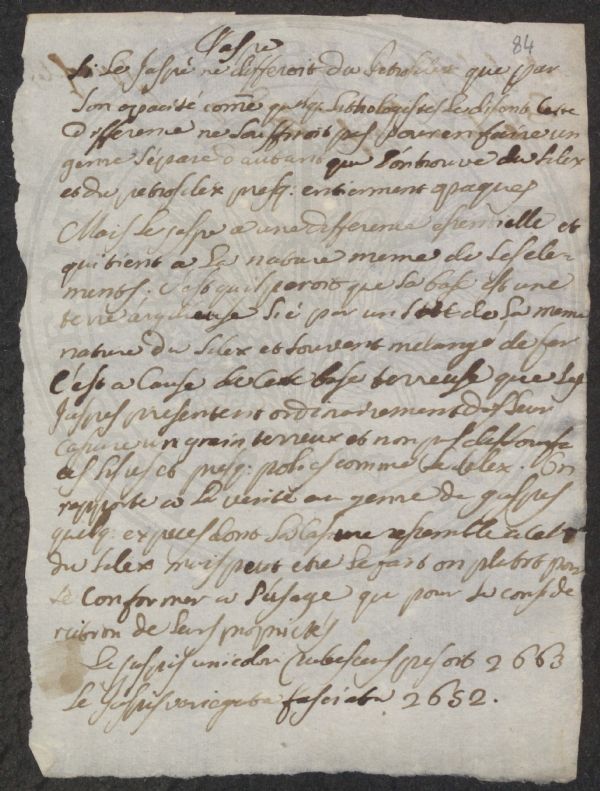 84
Jaspe
Si Le Jaspe ne differoit du petrosilex que par
Son opacité come quelq: Lithologistes Le disent Cette
difference ne Sauffiroit pas pour en faire un
genre Séparé d'autant que l'on trouve du Silex
et du petrosilex presq: entierement opaques
Mais Le jaspe a une difference essentielle et
qui tient a La nature meme de Ses ele-
ments. C'est qu'il paroit que Sa base est une
terre argileuse lié par un de La meme
nature du Silex et Souvent melangé de fer
C'est a Cause de Cette base terreuse que Les
Jaspes presentent ordinairement dans Leur
Casure un grain terreux et non pas
Lisses et presq: polies comme Le Silex. On
rapporte a La verité au genre de jaspes
quelq: especes dont La Casure resemble a Celle
du Silex mais peut etre Le fait on plutot pour
Se Conformer a l'usage que pour La conside
ration de Leurs proprietés
Le Jaspis unicolor rubescens pesoit 2663
Le Jaspis variegata fasciata 2652.